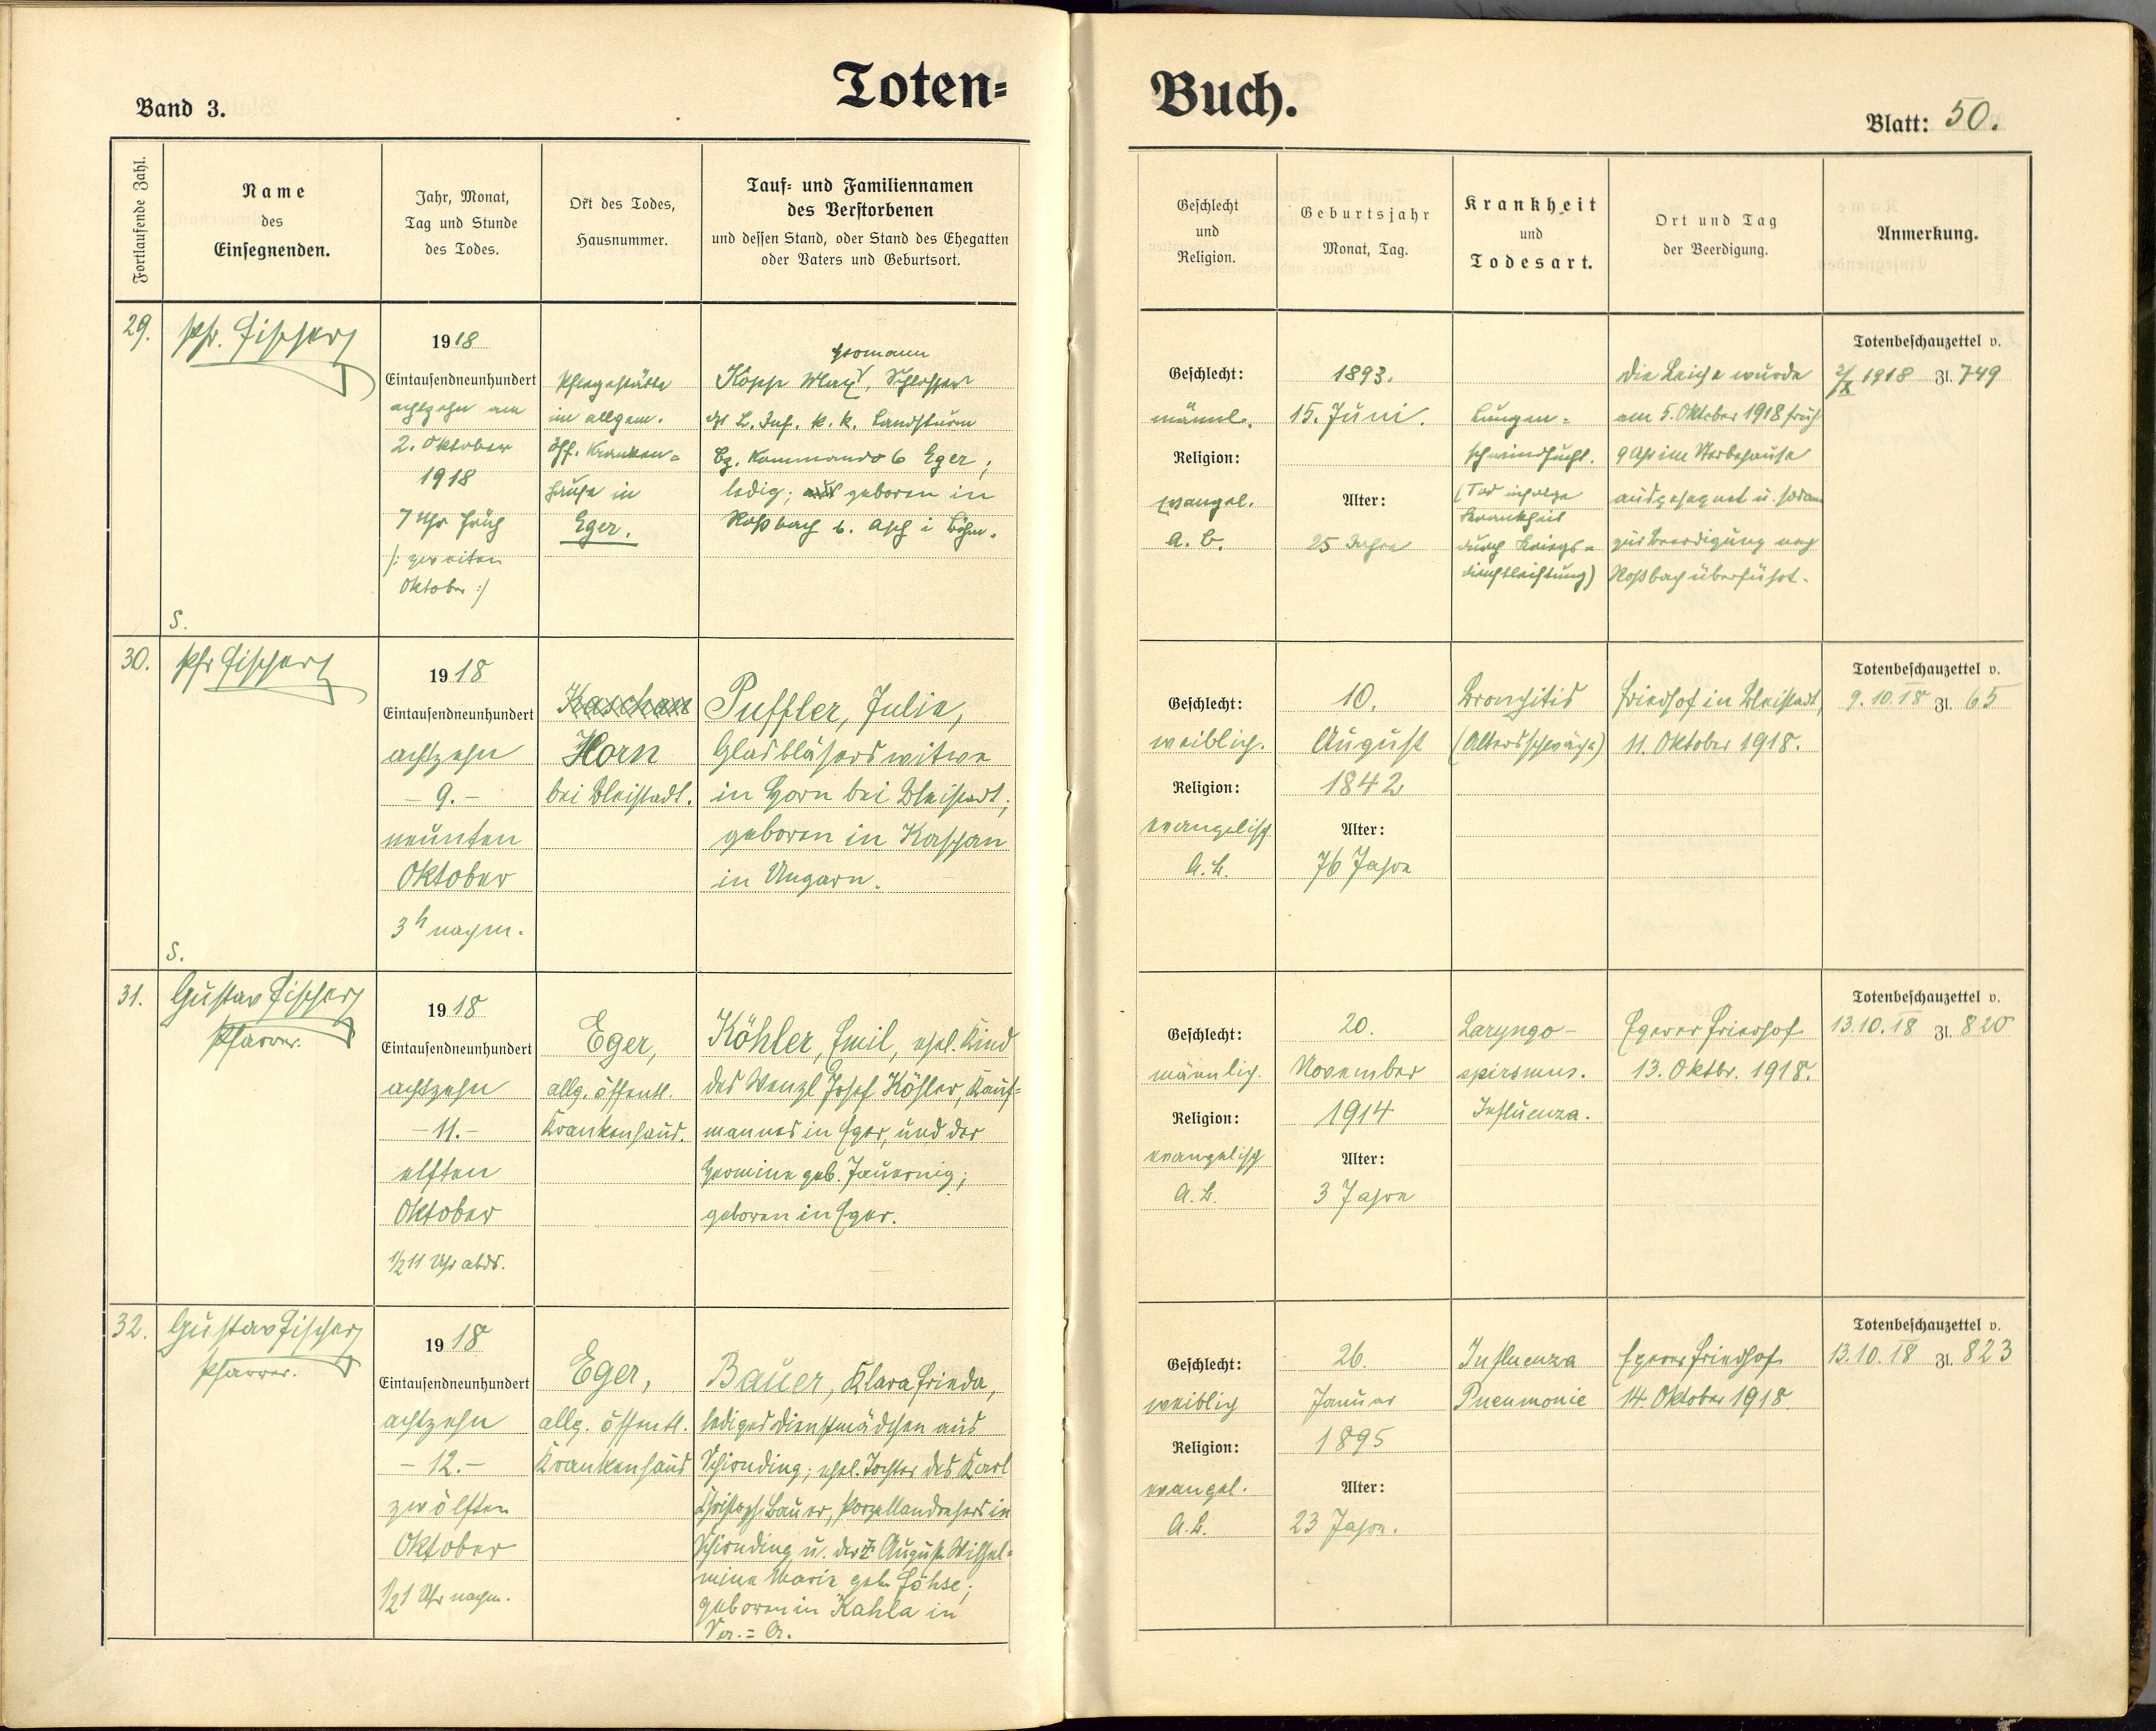 Toten=
Buch.
Band 3.
Blatt: 50.
Fortlaufende Zahl.
Name
des
Einsegnenden.
Jahr, Monat,
Tag und Stunde
des Todes.
Ort des Todes,
Hausnummer.
Tauf- und Familiennamen
des Verstorbenen
und dessen Stand, oder Stand des Ehegatten
oder Vaters und Geburtsort.
Geschlecht
und
Religion.
Geburtsjahr
Monat, Tag.
Krankheit
und
Todesart.
Ort und Tag
der Beerdigung.
Anmerkung.
29.
Pfr. Fischer
S.
1918
Eintausendneunhundert
achtzehn am
2. Oktober
1918
7 Uhr früh
/: zweiten
Oktober :/
Pflegestätte
im allgem.
öff. Kranken-
hause in
Eger.
Hermann
Kopp Max, Schlosser
L. Inf. k. k. Landsturm
Bz. Kommando 6 Eger;
ledig; geboren in
Roßbach b. Asch i Böhm.
Geschlecht:
männl.
Religion:
evangel.
A. B.
1893.
15. Juni.
Alter:
25 Jahre
Lungen-
schwindsucht.
(Tod infolge
Krankheit
durch Kriegs-
dienstleistung)
Die Leiche wurde
am 5. Oktober 1918 früh
9 Uhr im Sterbehause
ausgesegnet u. sodann
zur Beerdigung nach
Roßbach überführt.
Totenbeschauzettel v.
2/X 1918 Zl. 749
30.
Pfr Fischer
S.
1918
Eintausendneunhundert
achtzehn
- 9. -
neunten
Oktober
3 h nachm.
Kaschau
Horn
bei Bleistadt.
Puffler, Julie,
Glasbläserswitwe
in Horn bei Bleistadt;
geboren in Kaschau
in Ungarn.
Geschlecht:
weiblich.
Religion:
evangelisch
A. B.
10.
August
1842
Alter:
76 Jahre
Bronchitis
(Altersschwäche)
Friedhof in Bleistadt,
11. Oktober 1918.
Totenbeschauzettel v.
9.10.18 Zl. 65
31.
Gustav Fischer
Pfarrer.
1918
Eintausendneunhundert
achtzehn
- 11. -
elften
Oktober
1/2 11 Uhr abds.
Eger,
allg. öffentl.
Krankenhaus.
Köhler, Emil, ehel. Kind
des Wenzl Josef Köhler, Kauf-
mannes in Eger, und der
Hermine geb. Jauernig;
geboren in Eger.
Geschlecht:
männlich.
Religion:
evangelisch
A. B.
20.
November
1914
Alter:
3 Jahre
Laryngo-
spasmus.
Influenza.
Egerer Friedhof
13. Oktbr. 1918.
Totenbeschauzettel v.
13.10.18 Zl. 820
32.
Gustav Fischer
Pfarrer.
1918
Eintausendneunhundert
achtzehn
- 12. -
zwölften
Oktober
1/2 1 Uhr nachm.
Eger,
allg. öffentl.
Krankenhaus
Bauer, Klara Frieda,
lediges Dienstmädchen aus
Schirnding; ehel. Tochter des Karl
Christoph Bauer, Porzellandrehers in
Schirnding u. der Auguste Wilhel-
mine Marie geb. Löhse;
geboren in Kahla in
S.-A.
Geschlecht:
weiblich
Religion:
evangel.
A. B.
26.
Januar
1895
Alter:
23 Jahre.
Influenza
Pneumonie
Egerer Friedhof
14. Oktober 1918.
Totenbeschauzettel v.
13.10.18 Zl. 823